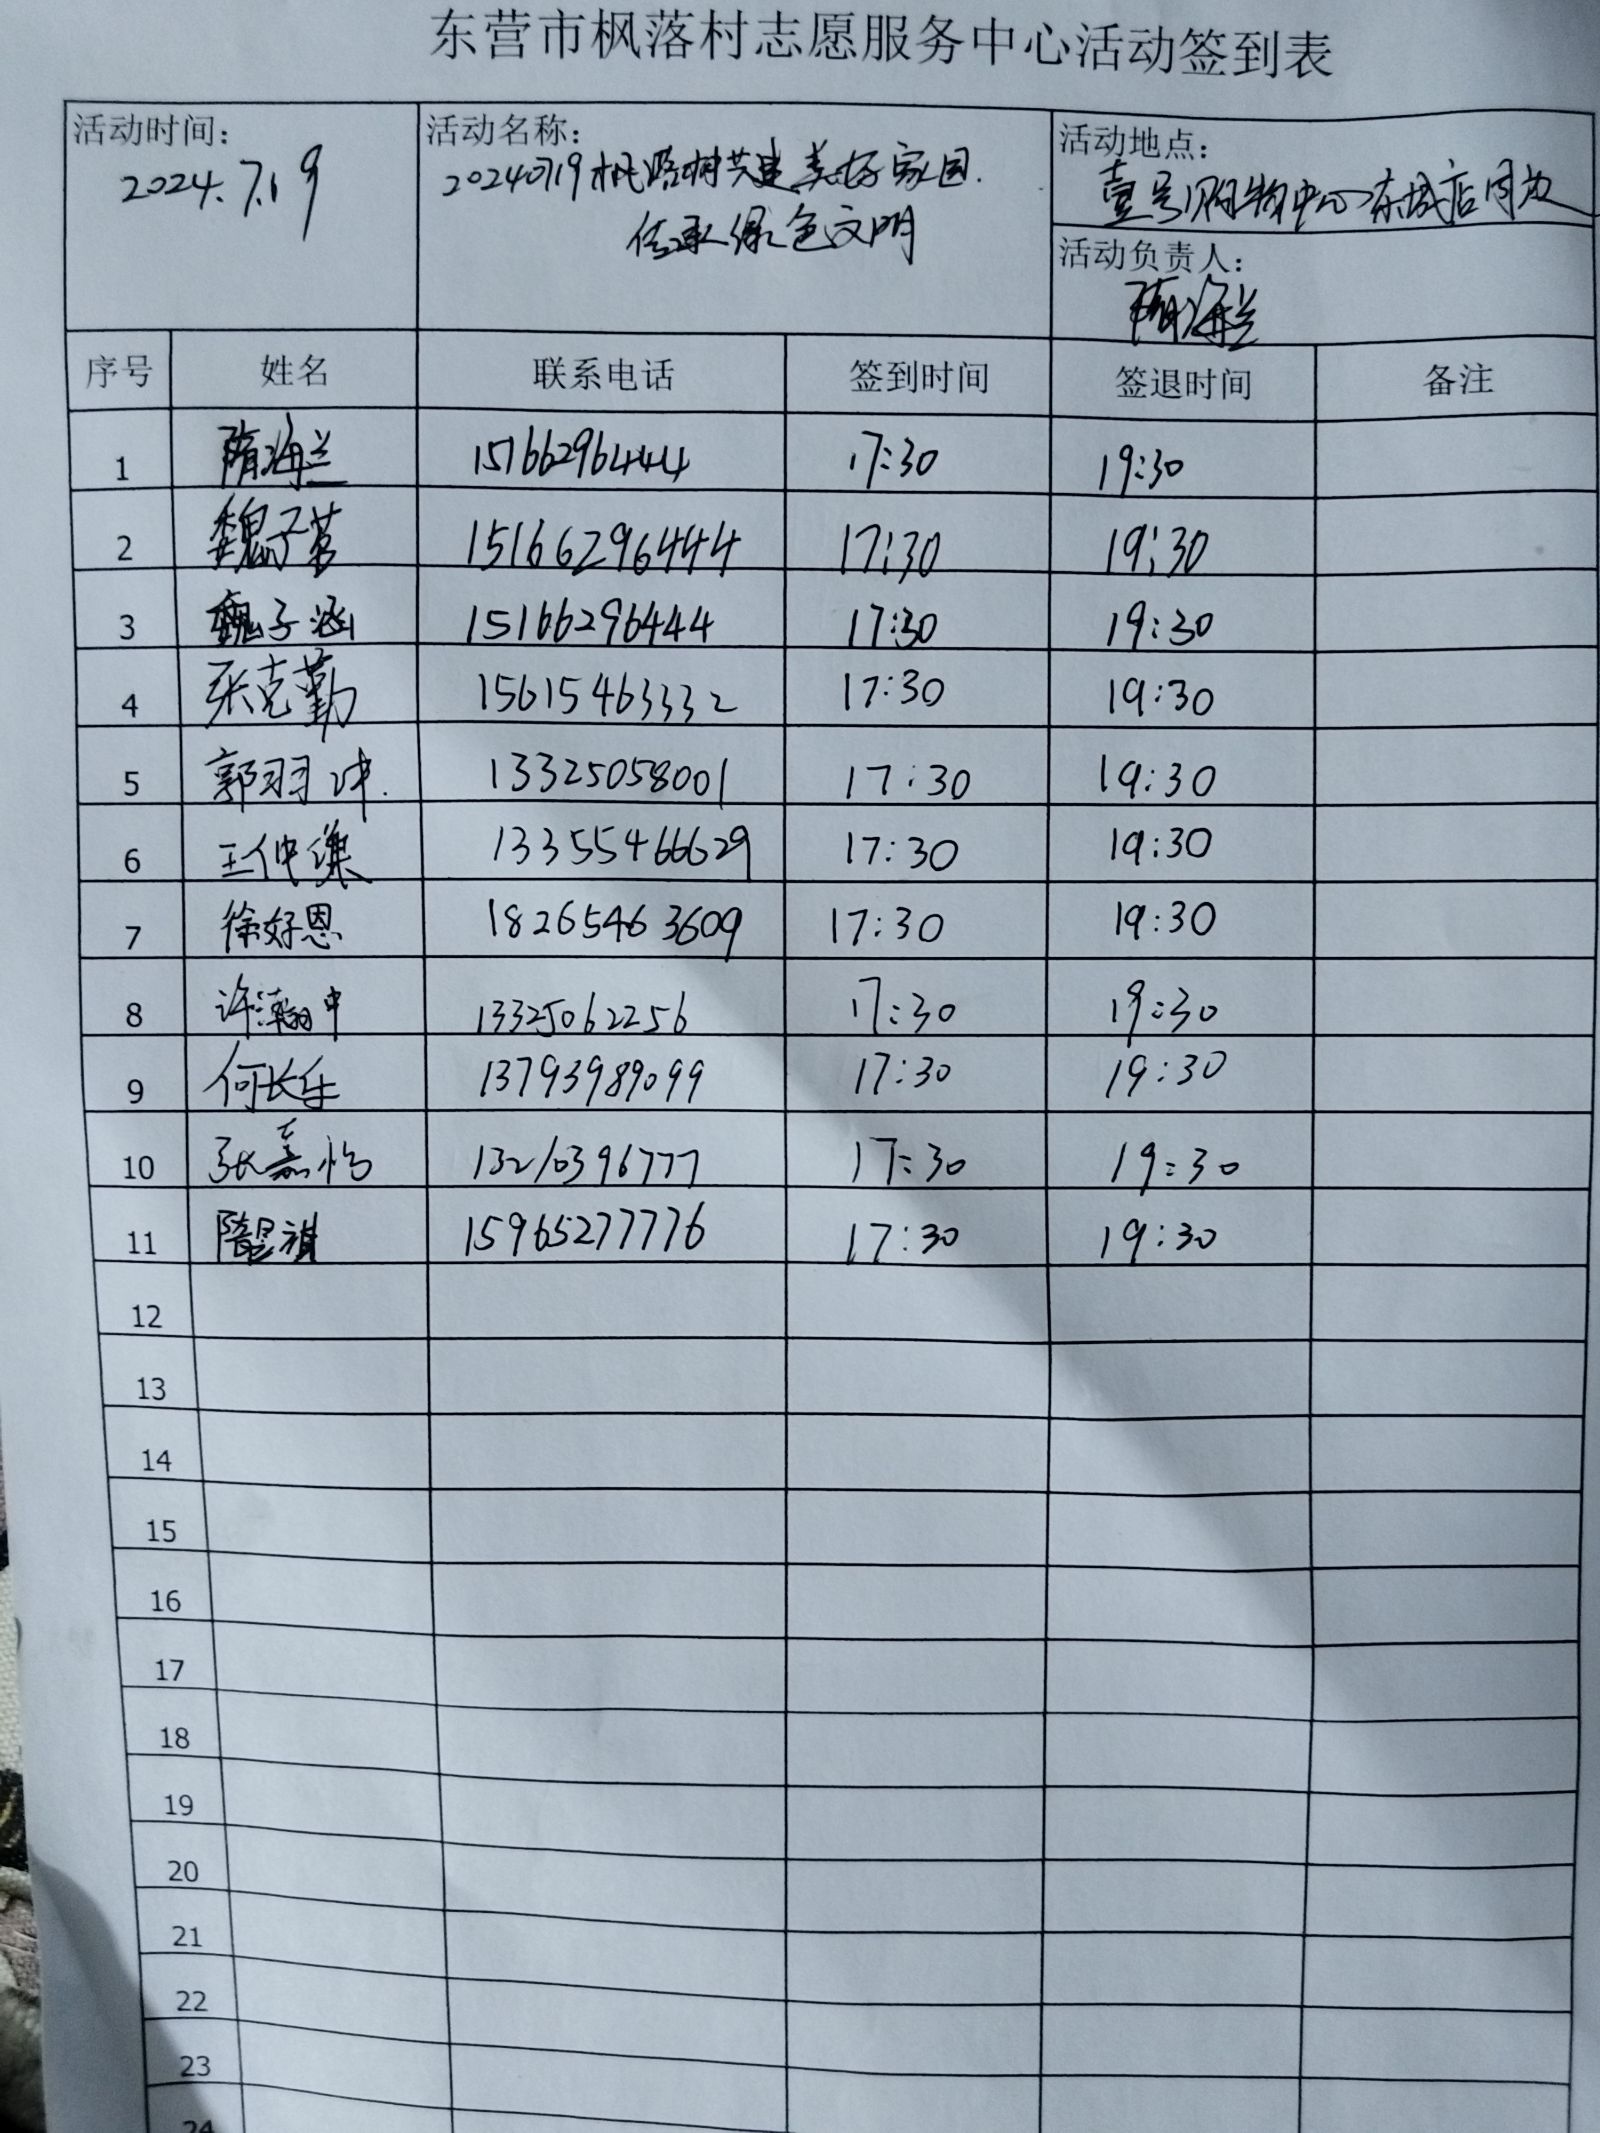 东营市枫落村志愿服务中心活动签到表
活动时间：
2024.7.19
活动名称：
20240719枫落村共建美好家园.
传承绿色文明
活动地点：
壹号购物中心东城店周边
活动负责人：
隋海兰
序号 姓名 联系电话 签到时间 签退时间 备注
1 隋海兰 15166296444 17:30 19:30
2 魏子 15166296444 17:30 19:30
3 魏子涵 15166296444 17:30 19:30
4 张克勤 15615463332 17:30 19:30
5 郭羽 13325058001 17:30 19:30
6 王仲 13355466629 17:30 19:30
7 徐好恩 18265463609 17:30 19:30
8 许瀚中 13325062256 17:30 19:30
9 何长乐 13793989099 17:30 19:30
10 张嘉怡 13210396777 17:30 19:30
11 隋昱祺 15965277776 17:30 19:30
12
13
14
15
16
17
18
19
20
21
22
23
24